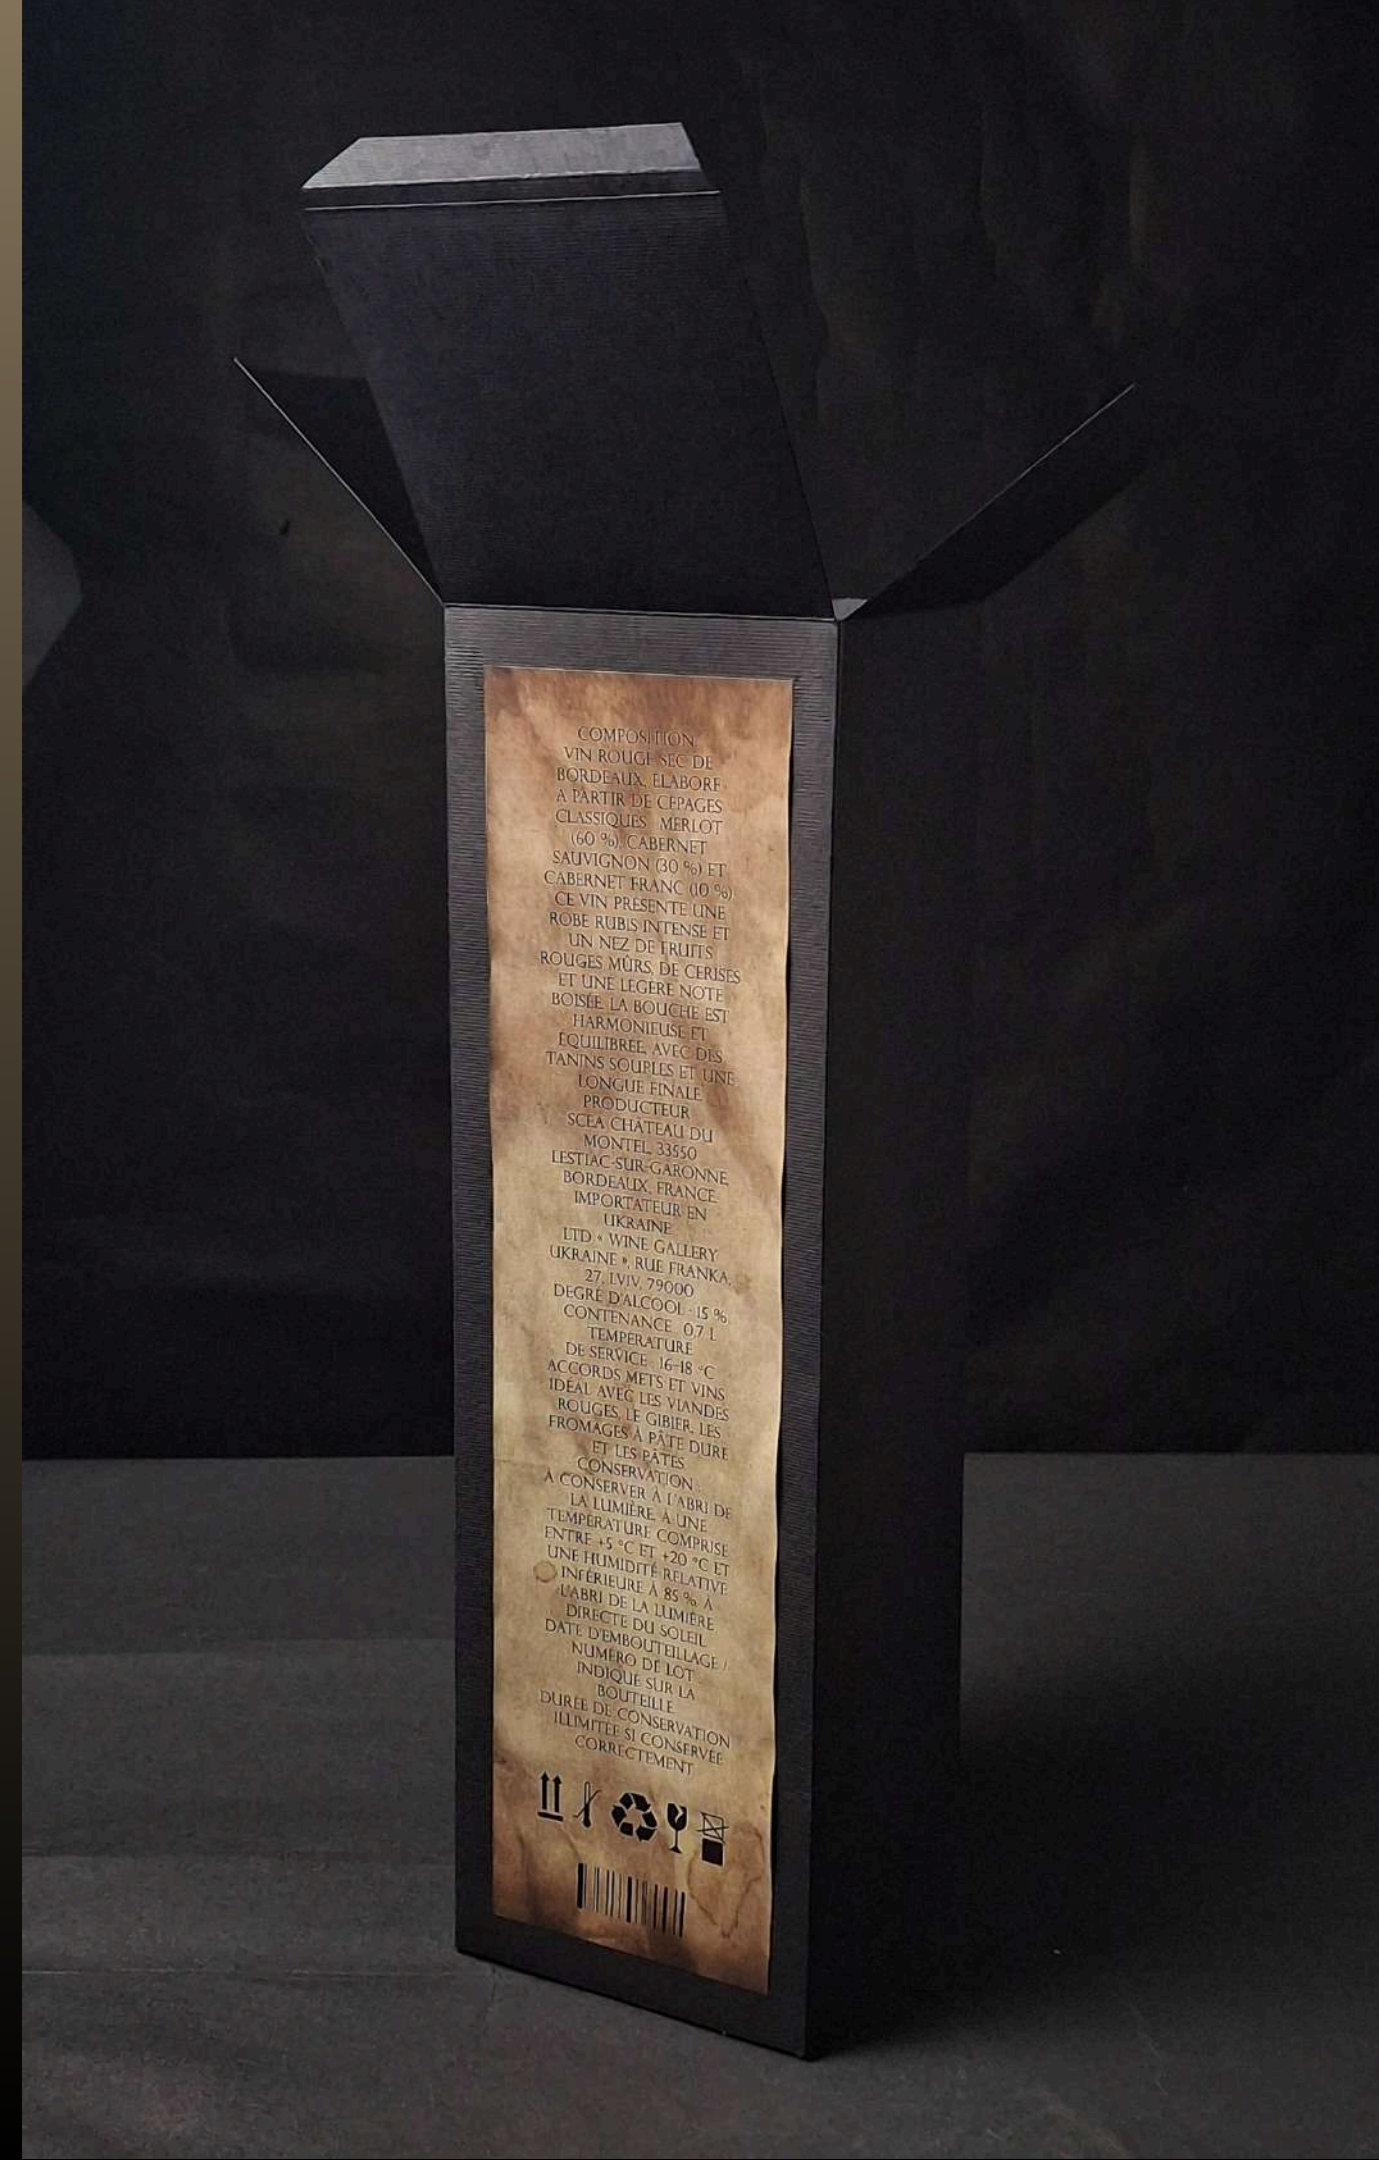 COMPOSITION
VIN ROUGE SEC DE
BORDEAUX, ELABORE
A PARTIR DE CEPAGES
CLASSIQUES MERLOT
(60 %), CABERNET
SAUVIGNON (30 %) ET
CABERNET FRANC (10 %)
CE VIN PRESENTE UNE
ROBE RUBIS INTENSE ET
UN NEZ DE FRUITS
ROUGES MÛRS, DE CERISES
ET UNE LEGÈRE NOTE
BOISÉE. LA BOUCHE EST
HARMONIEUSE ET
ÉQUILIBREE, AVEC DES
TANINS SOUPLES ET UNE
LONGUE FINALE.
PRODUCTEUR
SCEA CHÂTEAU DU
MONTEL, 33550
LESTIAC-SUR-GARONNE,
BORDEAUX, FRANCE.
IMPORTATEUR EN
UKRAINE
LTD « WINE GALLERY
UKRAINE », RUE FRANKA,
27, LVIV, 79000
DEGRÉ D'ALCOOL : 15 %
CONTENANCE : 0,7 L
TEMPERATURE
DE SERVICE : 16-18 °C
ACCORDS METS ET VINS
IDEAL AVEC LES VIANDES
ROUGES, LE GIBIER, LES
FROMAGES À PÂTE DURE
ET LES PÂTES
CONSERVATION :
À CONSERVER À L'ABRI DE
LA LUMIÈRE, À UNE
TEMPÉRATURE COMPRISE
ENTRE +5 °C ET +20 °C ET
UNE HUMIDITÉ RELATIVE
INFÉRIEURE À 85 %. À
L'ABRI DE LA LUMIÈRE
DIRECTE DU SOLEIL
DATE D'EMBOUTEILLAGE /
NUMÉRO DE LOT
INDIQUÉ SUR LA
BOUTEILLE
DURÉE DE CONSERVATION
ILLIMITÉE SI CONSERVÉE
CORRECTEMENT